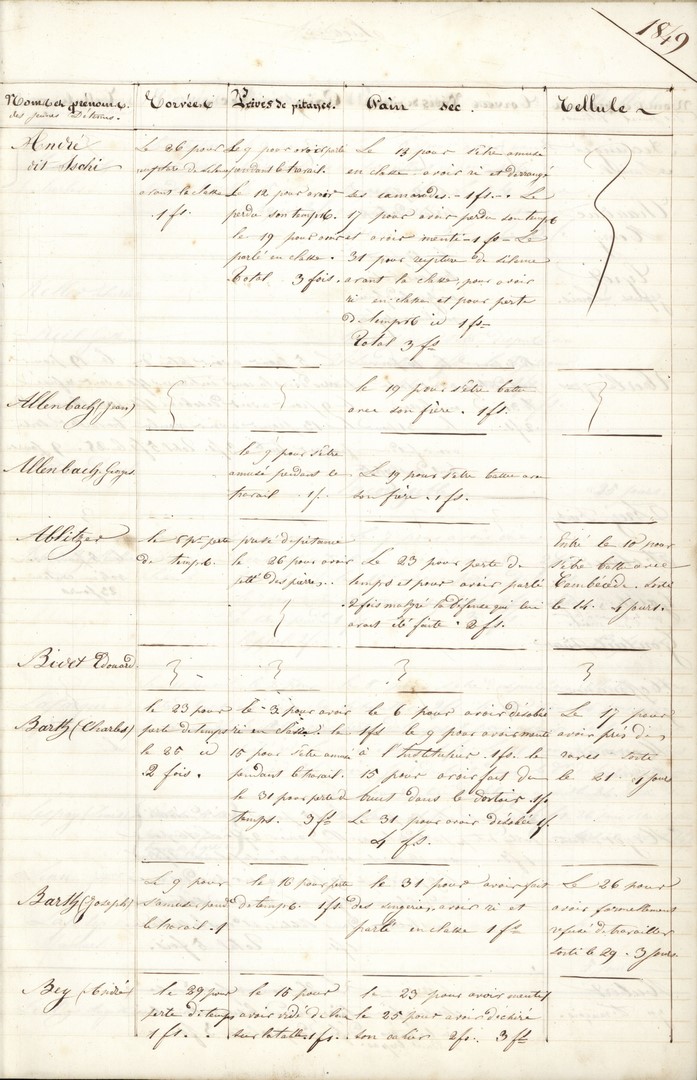 1849
Noms et prénoms.
des jeunes Détenus.
Corvées
Privés de pitance.
Pain sec.
Cellule
André
dit Tschi
Le 26 pour
rupture de silence
avant la classe
1 fs.
Le 9 pour avoir parlé
pendant le travail.
Le 12 pour avoir
perdu son temps
le 19 pour avoir
parlé en classe.
Total 3 fois.
Le 13 pour s'être amusé
en classe avoir ri et dérrangé
ses camarades. - 1 fs. - Le
17 pour avoir perdu son temps
et avoir menti - 1 fs - Le
31 pour rupture de silence
avant la classe, pour avoir
ri en classe et pour perte
de temps id 1 fs -
Total 3 fs
Allenbach (Jean)
le 19 pour s'être battu
avec son frère. 1 fs.
Allenbach Georges
le 9 pour s'être
amusé pendant le
travail 1 f.
Le 19 pour s'être battu avec
son frère. 1 fs.
Ablitzer
le 5 pr perte
de temps.
privé de pitance
le 26 pour avoir
jetté des pierres.
Le 23 pour perte de
temps et pour avoir parlé
2 fois malgré la défense qui lui
avait été faite. 2 fs.
Entré le 10 pour
s'être battu avec
Combécède. Sorti
le 14. 4 jours.
Bivet Edouard
Barth (Charles)
le 23 pour
perte de temps
le 25 id
2 fois.
le 3 pour avoir
ri en classe. le
15 pour s'être amusé
pendant le travail.
le 31 pour perte de
temps. 3 fs
le 6 pour avoir désobéi
1 fs le 9 pour avoir menti
à l'Instituteur. 1 fs. le
15 pour avoir fait du
bruit dans le dortoir. 1 fs
Le 31 pour avoir désobéi 1 f.
4 fs.
Le 17 pour
avoir pris des
raves sorti
le 21. 4 jours
Barth (Joseph)
Le 9 pour
s'amuser pendt
le travail. 1
le 16 pour perte
de temps. 1 fs
le 31 pour avoir fait
des singeries, avoir ri et
parlé en classe 1 fs
Le 26 pour
avoir formellement
refusé de travailler
sorti le 29. 3 jours
Bey (André)
le 29 pour
perte de temps
1 fs.
le 15 pour
avoir vidé de l'eau
sur la table 1 fs.
le 23 pour avoir menti
le 25 pour avoir déchiré
son cahier 2 fs. 3 fs